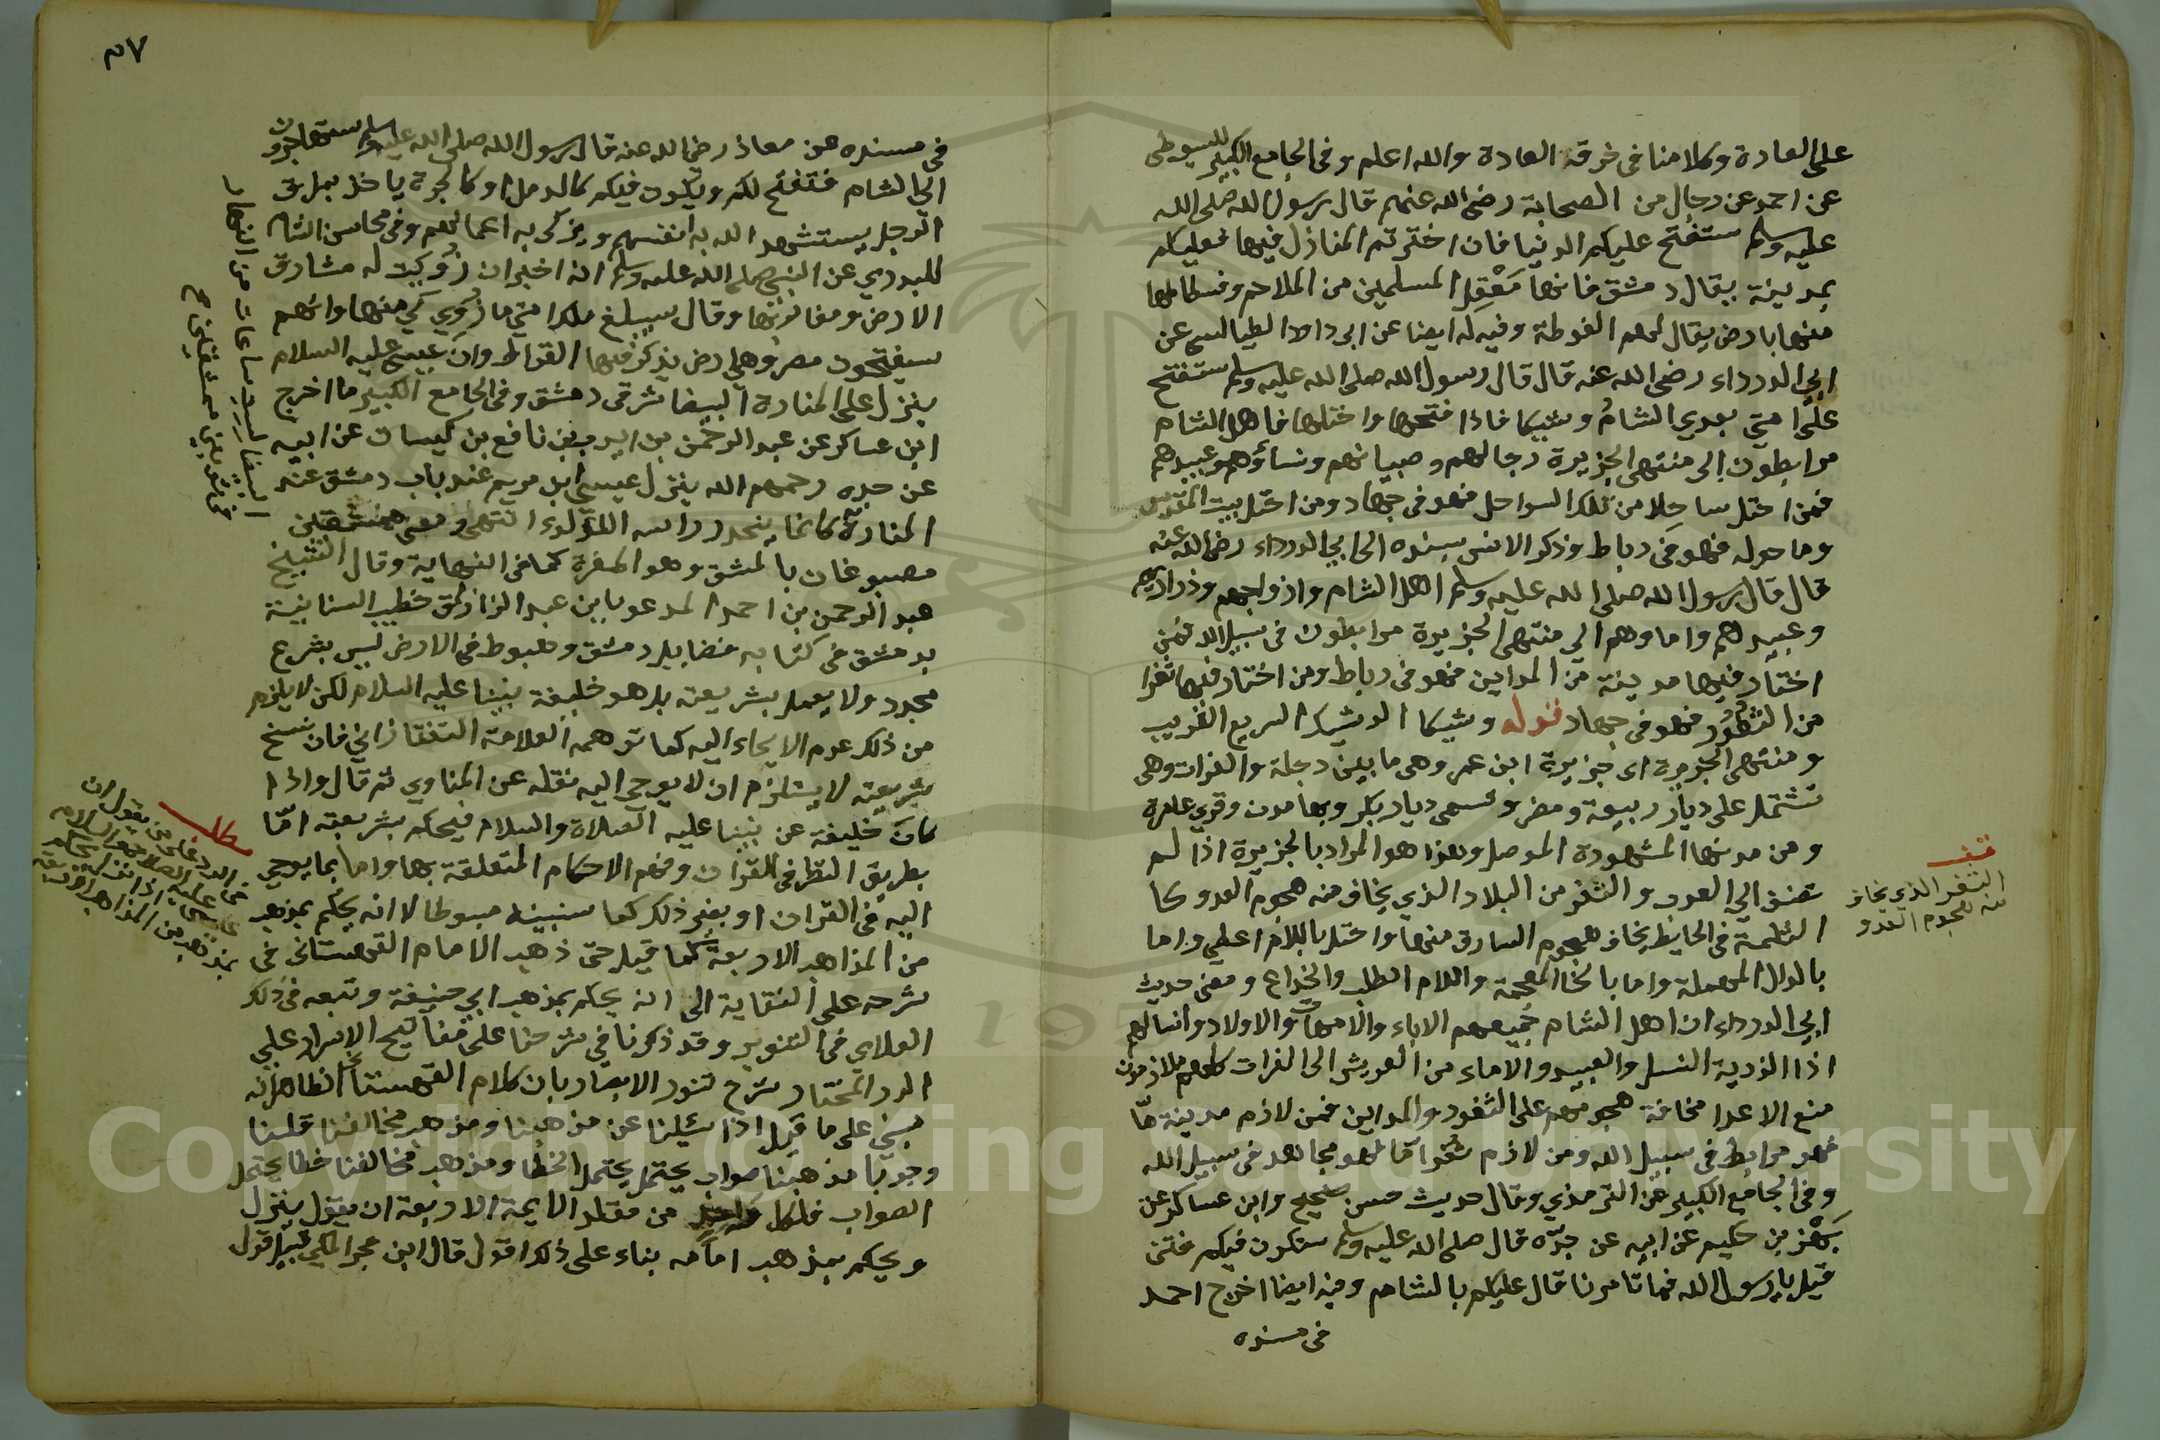 على العادة وكلامنا في خرقه العادة والله اعلم وفي الجامع الكبير للسيوطي
عن احمد عن رجال من الصحابة رضي الله عنهم قال رسول الله صلى الله
عليه وسلم ستفتح عليكم الدنيا فان اخترتم المنازل فيها فعليكم
بمدينة يقال دمشق فانها مَعْقِل المسلمين من الملاحم وفسطاطها
منها بارض يقال لها الغوطة وفيه له ايضا عن ابي داود الطيالسي عن
ابي الدرداء رضي الله عنه قال قال رسول الله صلى الله عليه وسلم ستفتح
على امتي بعدي الشام وشيكا فاذا فتحها واحتلها فاهل الشام
مرابطون الى منتهى الجزيرة رجالهم وصبيانهم ونساؤهم وعبيدهم
فمن احتل ساحلا من تلك السواحل فهو في جهاد ومن احتل بيت المقدس
وما حوله فهو في رباط وذكر الانس بسنده الى ابي الدرداء رضي الله عنه
قال قال رسول الله صلى الله عليه وسلم اهل الشام وازواجهم وذراريهم
وعبيدهم واماوهم الي منتهى الجزيرة مرابطون في سبيل الله فمن
اختار فيها مدينة من المداين فهو في رباط ومن اختار فيها ثغرا
من الثغور فهو في جهاد قوله وشيكا الوشيك السريع القريب
ومنتهى الجزيرة اي جزيرة ابن عمر وهي ما بين دجلة والفرات وهي
تشتمل على ديار ربيعة ومضر وتسمى ديار بكر وبها مدن وقري عامرة
ومن مدنها المشهودة الموصل وهذا هو المراد بالجزيرة اذا لم
تضف الي العرب والثغر من البلاد الذي يخاف منه هجوم العدو كا
الثلمة في الحايط يخاف هجوم السارق منها واحتل باللام اعلي واما
بالدال المهملة واما بالخا المعجمة واللام الطلب والخداع ومعنى حديث
ابي الدرداء ان اهل الشام جميعهم الاباء والامهات والاولاد وانسالهم
اذا الذرية النسل والعبيد والاماء من العريش الى الفرات كلهم ملازمون
منع الاعدا مخافة هجومهم على الثغور والمداين فمن لازم مدينة مّا
فهو مرابط في سبيل الله ومن لازم ثغرا مّا فهو مجاهد في سبيل الله
وفي الجامع الكبير عن الترمذي وقال حديث حسن صحيح وابن عساكر عن
بَهْز بن حكيم عن ابيه عن جدّه قال صلى الله عليه وسلم ستكون فيكم فتن
قيل يا رسول الله فما تامرنا قال عليكم بالشام وفيه ايضا اخرج احمد
في مسنده
قف
الثغر الذي يخاف
منه هجوم العدو
٣٧
في مسنده عن معاذ رضي الله عنه قال رسول الله صلى الله عليه وسلم ستهاجرون
الى الشام فتفتح لكم ويكون فيكم كالدمل او كالحرة ياخذ بمراق
الرجل يستشهد الله به انفسهم ويزكي به اعمالهم وفي محاسن الشام
للبدري عن النبي صلى الله عليه وسلم انه اخبر ان زُوِيَت له مشارق
الارض ومغاربها وقال سيبلغ ملك امتي ما زُوي لي منها وانهم
سيفتحون مصر وهي ارض يذكر فيها القيراط وان عيسى عليه السلام
ينزل على المنارة البيضا شرقي دمشق وفي الجامع الكبير ما اخرج
ابن عساكر عن عبد الرحمن بن ايوب بن نافع بن كيسان عن ابيه
عن جده رحمهم الله ينزل عيسى ابن مريم عند باب دمشق عند
المنارة كانما يتحدر راسه اللؤلؤ انتهى ومعنى ممشقتين
مصبوغان بالمشق وهو المغرة كما في النهاية وقال الشيخ
عبد الرحمن بن احمد المدعو بابن عبد الرزاق خطيب السنانية
بدمشق في كتابه فضايل دمشق وهبوطه في الارض ليس بشرع
مجدد ولا يعمل بشريعته بل هو خليفة نبينا عليه السلام لكن لا يلزم
من ذلك عدم الايحاء اليه كما توهمه العلامة التفتازاني فان نسخ
شريعته لا يستلزم ان لا يوحي اليه نقله عن المناوي ثم قال واذا
كان خليفة عن نبينا عليه الصلاة والسلام فيحكم بشريعته امّا
بطريق النظر في القرآن وفهم الاحكام المتعلقة بها واما بما يوحي
اليه في القرآن او بغير ذلك كما سنبينه مبسوطا لا انه يحكم بمذهب
من المذاهب الاربعة كما قيل حتى ذهب الامام القهستاني في
شرحه على النقاية الى انه يحكم بمذهب ابي حنيفة وتبعه في ذلك
العلاي في التنوير وقد ذكرنا في شرحنا على مفاتيح الاسرار على
الدر المختار شرح تنوير الابصار بان كلام القهستاني الظاهر انه
مبني على ما قيل اذا سئلنا عن مذهبنا ومذهب مخالفنا قلنا
وجوبا مذهبنا صواب يحتمل الخطا ومذهب مخالفنا خطا يحتمل
الصواب فلكل واحد من مقلد الايمة الاربعة ان يقول ينزل
ويحكم بمذهب امامه بناء على ذلك اقول قال ابن حجر المكي قبيل قول
البيضا لست ساعات من النهار
في ثوبين ممشقين صح
مطلب
في الرد على من يقول ان
عيسى عليه الصلاة والسلام
اذا نزل يحكم
بمذهب من المذاهب الاربعة
Copyright © King Saud University
195